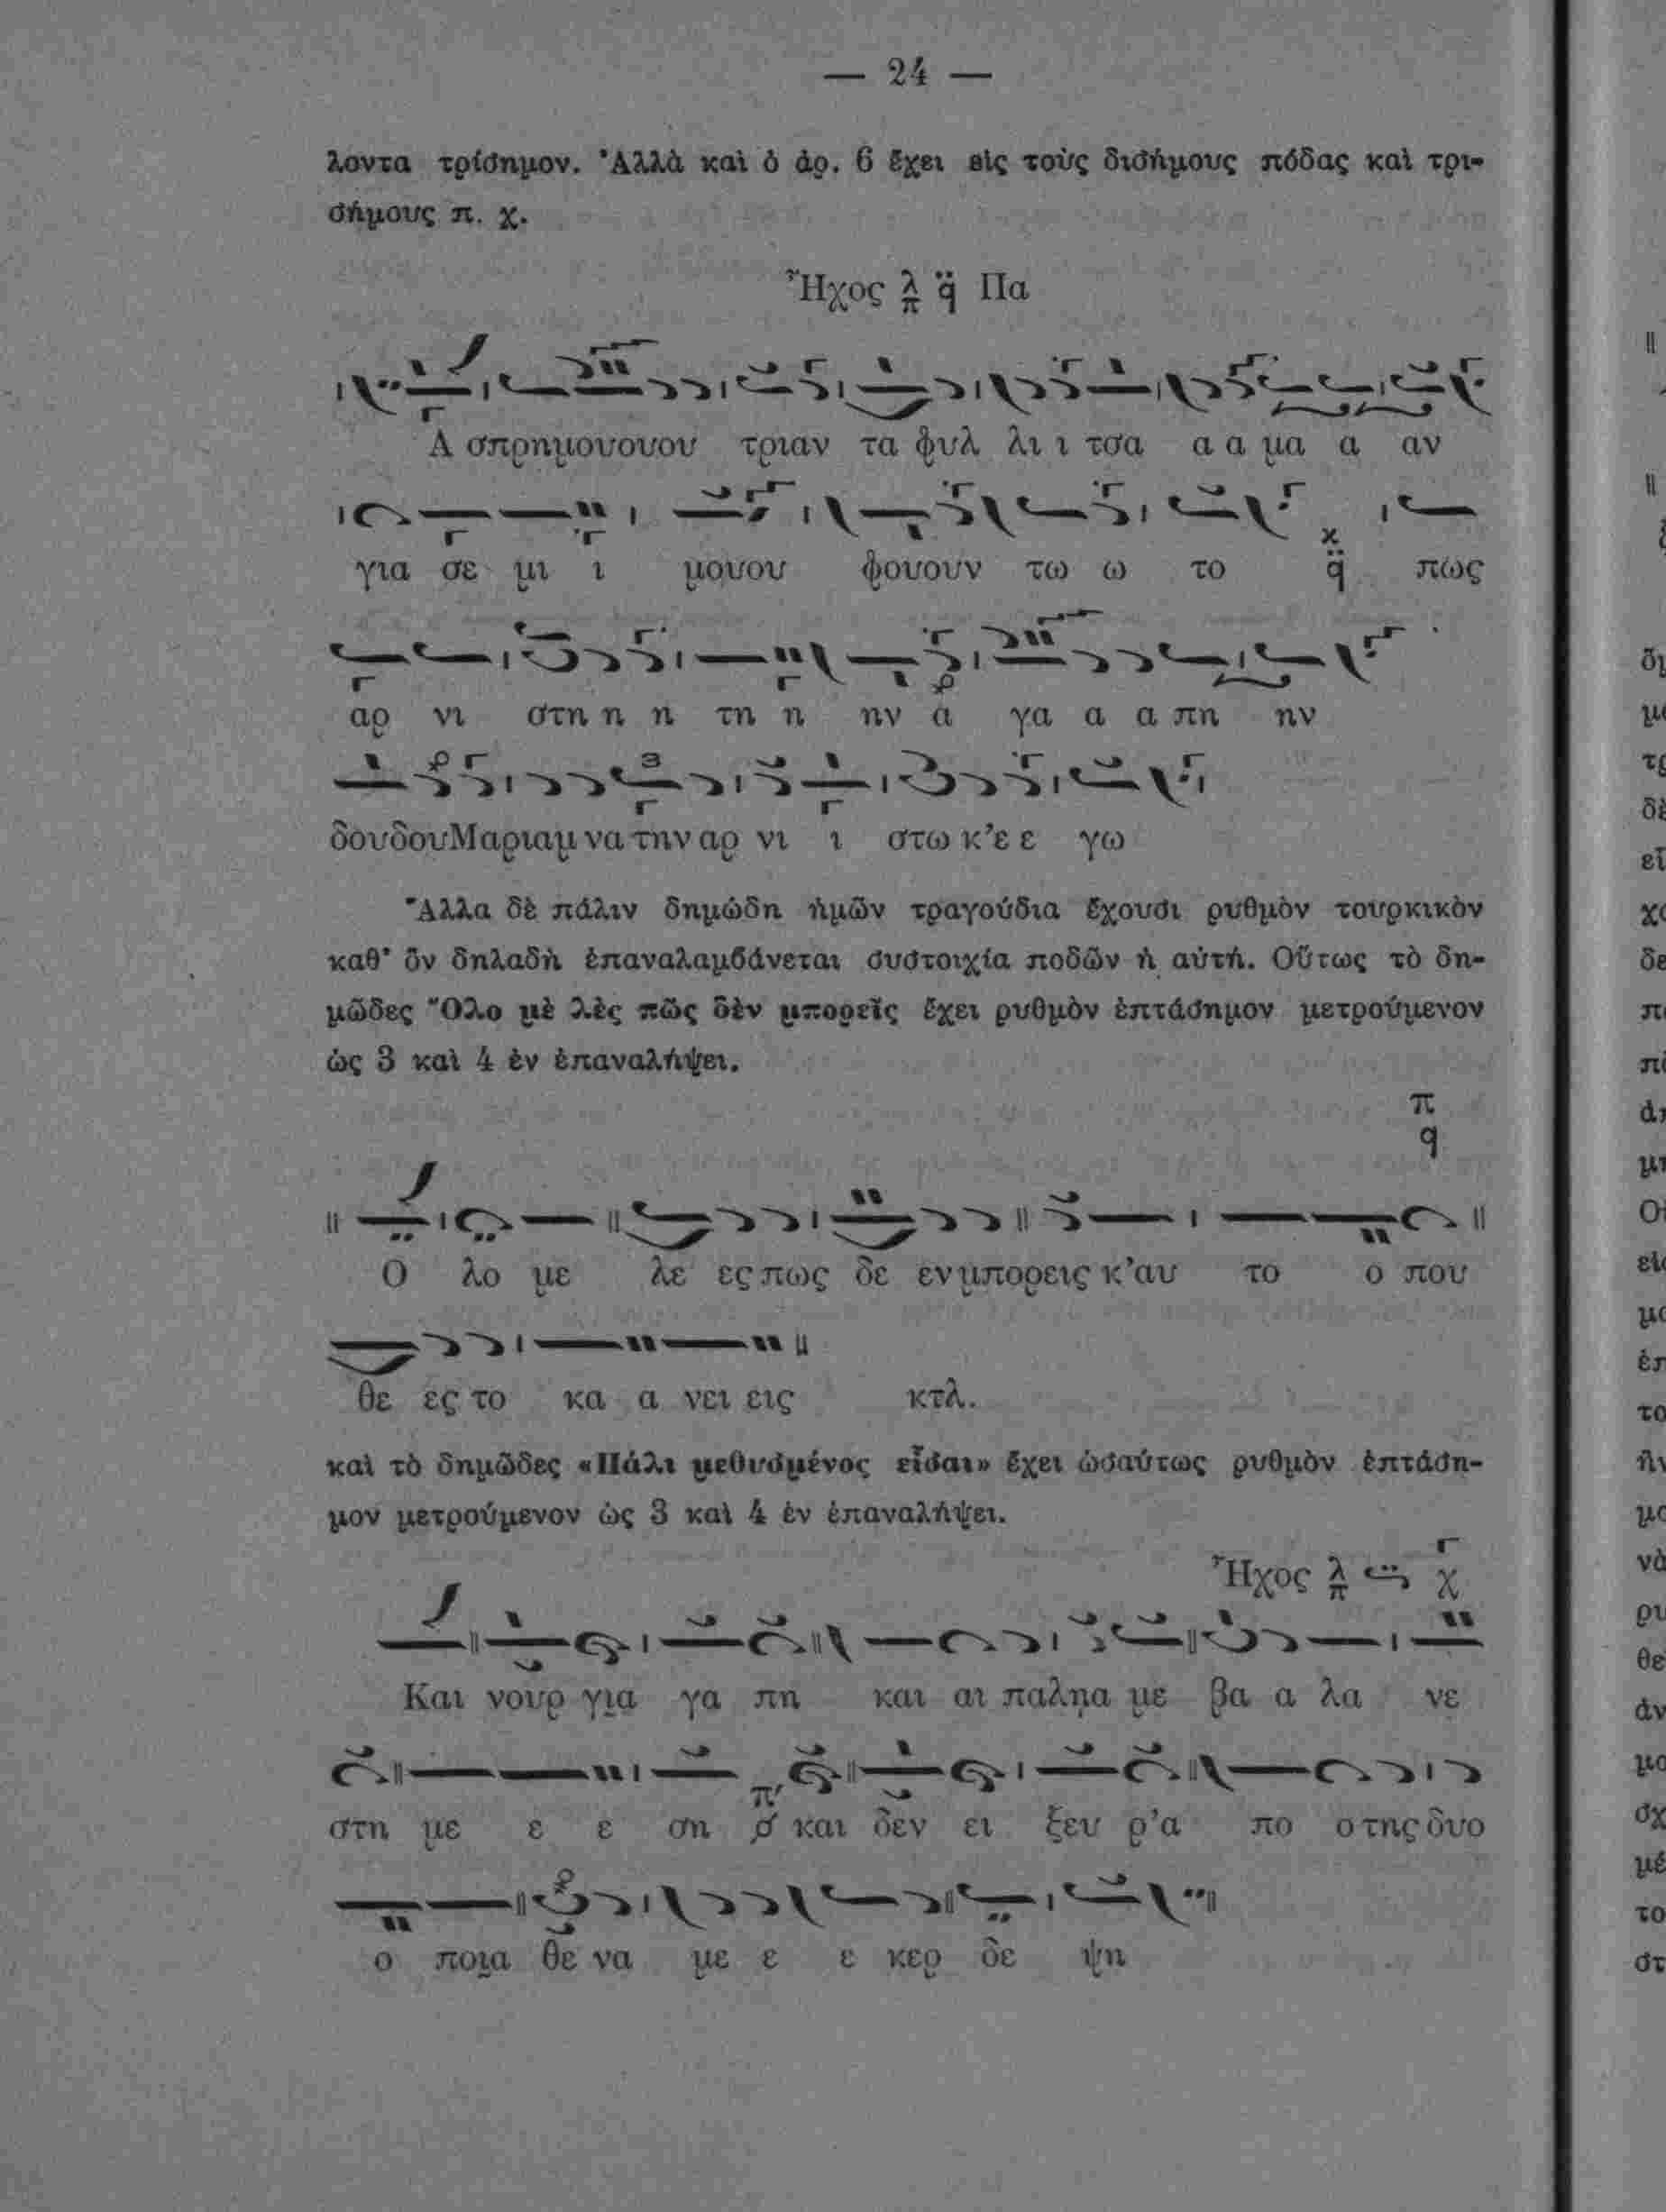 — 24 —
λοντα τρίσημον. Ἀλλὰ καὶ ὁ ἀρ. 6 ἔχει εἰς τοὺς δισήμους πόδας καὶ τρι-
σήμους π. χ.
Ἦχος λ π q Πα
Α σπρημουουου τριαν τα φυλ λι ι τσα α α μα α αν
για σε μι ι μουου φουουν τω ω το q πως
αρ νι στη η η τη η ην α γα α α πη ην
δουδουΜαριαμ να την αρ νι ι στω κ’ε ε γω
Ἄλλα δὲ πάλιν δημώδη ἡμῶν τραγούδια ἔχουσι ρυθμὸν τουρκικὸν
καθ’ ὃν δηλαδὴ ἐπαναλαμβάνεται συστοιχία ποδῶν ἡ αὐτή. Οὕτως τὸ δη-
μῶδες Ὅλο μὲ λὲς πῶς δὲν μπορεῖς ἔχει ρυθμὸν ἑπτάσημον μετρούμενον
ὡς 3 καὶ 4 ἐν ἐπαναλήψει.
π
q
Ο λο με λε ες πως δε εν μπορεις κ’αυ το ο που
θε ες το κα α νει εις κτλ.
καὶ τὸ δημῶδες «Πάλι μεθυσμένος εἶσαι» ἔχει ὡσαύτως ρυθμὸν ἑπτάση-
μον μετρούμενον ὡς 3 καὶ 4 ἐν ἐπαναλήψει.
Ἦχος λ π χ
Και νουρ για γα πη και αι παληα με βα α λα νε
στη με ε ε ση π’ και δεν ει ξευ ρ’α πο ο της δυο
ο ποια θε να με ε ε κερ δε ψη